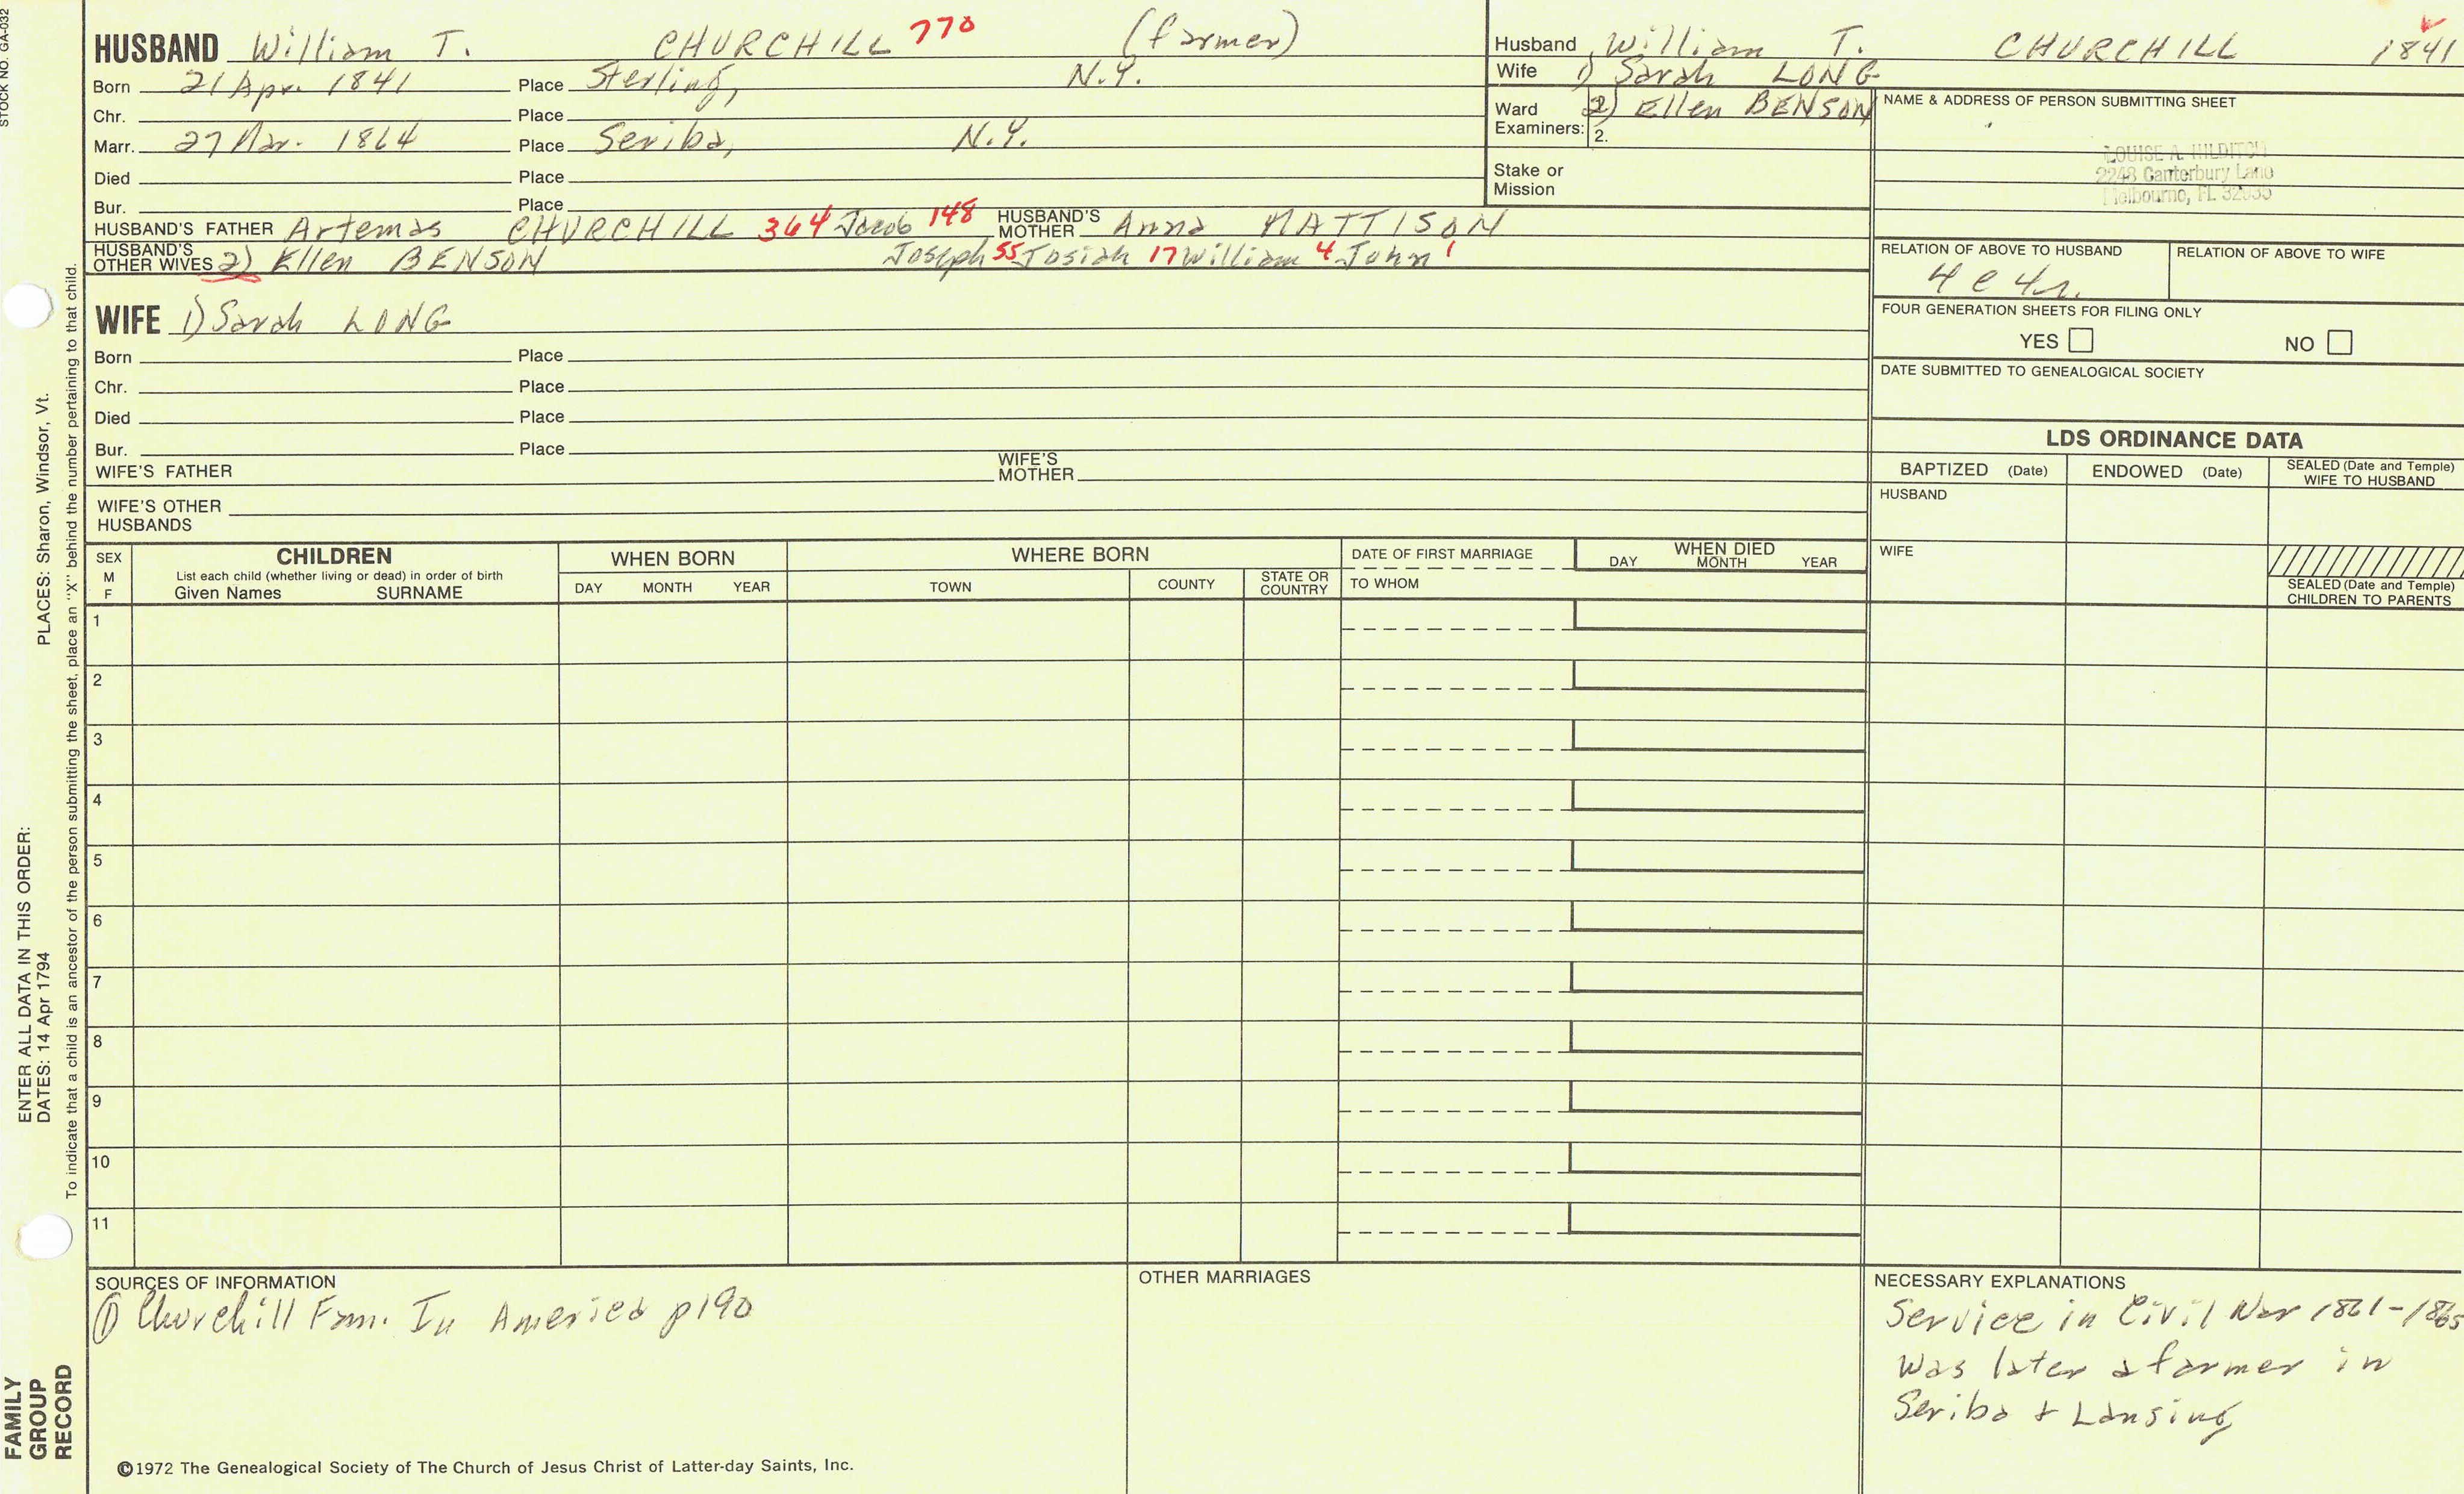 STOCK NO. GA-032
HUSBAND William T. CHURCHILL 770 (farmer)
Born 21 Apr. 1841 Place Sterling, N.Y.
Chr. Place
Marr. 27 Mar. 1864 Place Scriba, N.Y.
Died Place
Bur. Place
HUSBAND'S FATHER Artemas CHURCHILL 364 Jacob 148 HUSBAND'S MOTHER Anna MATTISON
HUSBAND'S OTHER WIVES 2) Ellen BENSON Joseph 55 Josiah 17 William 4 John 1
WIFE 1) Sarah LONG
Born Place
Chr. Place
Died Place
Bur. Place
WIFE'S FATHER WIFE'S MOTHER
WIFE'S OTHER HUSBANDS
Husband William T. CHURCHILL 1841
Wife 1) Sarah LONG
Ward 2) Ellen BENSON
Examiners: 2.
Stake or
Mission
NAME & ADDRESS OF PERSON SUBMITTING SHEET
LOUISE A. HILDITCH
2248 Canterbury Lane
Melbourne, FL 32935
RELATION OF ABOVE TO HUSBAND RELATION OF ABOVE TO WIFE
4 c 4r.
FOUR GENERATION SHEETS FOR FILING ONLY
YES NO
DATE SUBMITTED TO GENEALOGICAL SOCIETY
LDS ORDINANCE DATA
BAPTIZED (Date) ENDOWED (Date) SEALED (Date and Temple) WIFE TO HUSBAND
HUSBAND
WIFE
SEALED (Date and Temple)
CHILDREN TO PARENTS
SEX M F CHILDREN WHEN BORN WHERE BORN DATE OF FIRST MARRIAGE WHEN DIED
List each child (whether living or dead) in order of birth
Given Names SURNAME DAY MONTH YEAR TOWN COUNTY STATE OR COUNTRY TO WHOM DAY MONTH YEAR
1
2
3
4
5
6
7
8
9
10
11
SOURCES OF INFORMATION
① Churchill Fam. In America p190
OTHER MARRIAGES
NECESSARY EXPLANATIONS
Service in Civil War 1861-1865
was later a farmer in
Scriba + Lansing
©1972 The Genealogical Society of The Church of Jesus Christ of Latter-day Saints, Inc.
ENTER ALL DATA IN THIS ORDER:
DATES: 14 Apr 1794 PLACES: Sharon, Windsor, Vt.
To indicate that a child is an ancestor of the person submitting the sheet, place an "X" behind the number pertaining to that child.
FAMILY
GROUP
RECORD